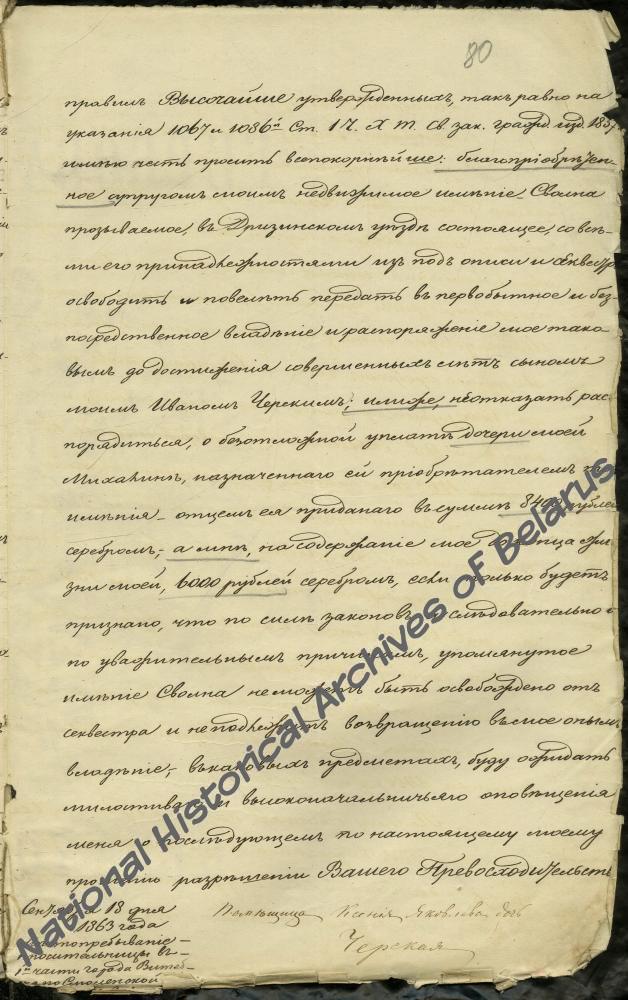 80
правилъ Высочайше утвержденныхъ, такъ равно на
указанія 1067 и 1086й Ст. 1 Ч. X Т. Св. зак. гражд. изд. 1857
имѣю честь просить всепокорнѣйше: благопріобрѣтен-
ное супругомъ моимъ недвижимое имѣніе Сволна
прозываемое, въ Дризинскомъ уѣздѣ состоящее, со всѣ-
ми его принадлежностями изъ подъ описи и секвестра
освободить и повелѣть передать въ первобытное и без-
посредственное владѣніе и распоряженіе мое тако-
вымъ до достиженія совершенныхъ лѣтъ сыномъ
моимъ Иваномъ Черскимъ; или же, неотказать рас-
порядиться, о безотложной уплатѣ дочери моей
Михалинѣ, назначеннаго ей пріобрѣтателемъ
имѣнія отцемъ ея приданаго въ суммѣ рублей
серебромъ, а мнѣ, на содержаніе мое до конца жи-
зни моей, 6000 рублей серебромъ, если только будетъ
признано, что по силѣ законовъ послѣдовательно и
по уважительнымъ причинамъ, упомянутое
имѣніе Сволна не можетъ быть освобождено отъ
секвестра и неподлежитъ возвращенію въ мое
владѣніе, въ каковыхъ предметахъ, буду ожидать
милостиваго и высоконачальничьяго оповѣщенія
меня о послѣдующемъ по настоящему моему
прошенію разрѣшеніи Вашего Превосходительств
Сентября 18 дня
1863 года
Мѣстопребываніе
просительницы въ
1й части города Витеб-
по Смоленской
Помѣщица Ксенія Яковлева дочь
Черская
National Historical Archives of Belarus